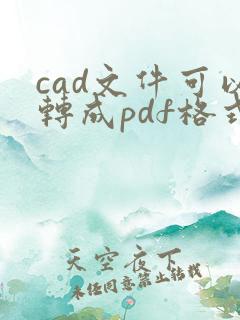 cad文件可以
轉成pdf格式
天空夜下
未任同意禁止轉載